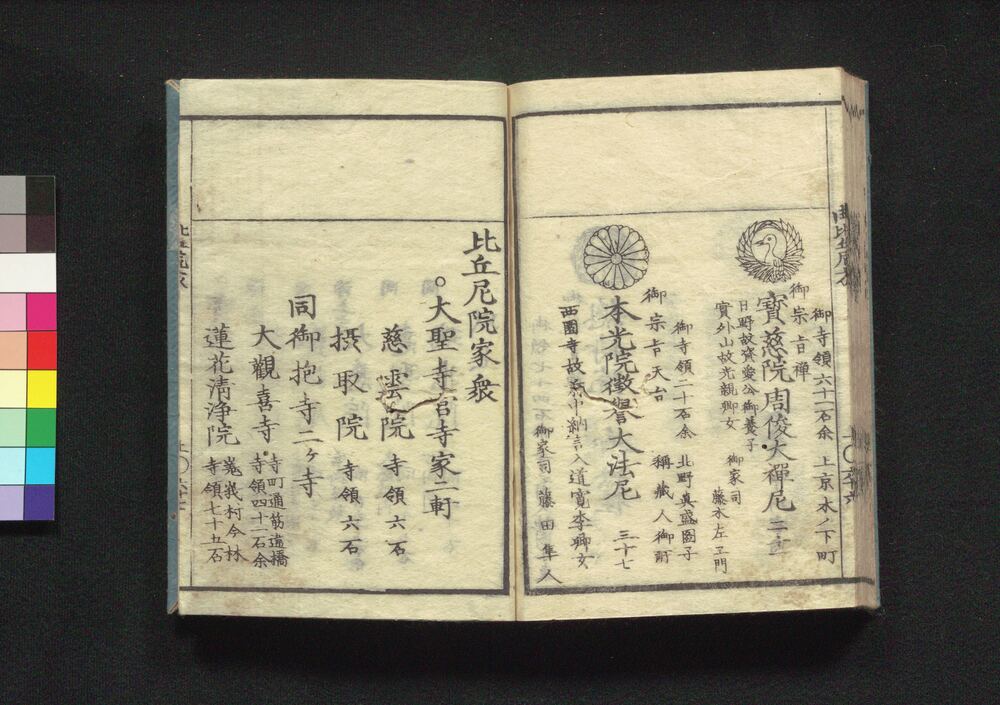 御寺領六十一石余 上京木ノ下町
御宗旨禅
寳慈院周俊大禪尼 二十
日野故資愛公御養子 御家司
實外山故光親卿女 藤木左ヱ門
御寺領二十石余 北野真盛圖子
御宗旨天台 稱蔵人御所
本光院徴誉大法尼 三十七
西園寺故前中納言入道寛季卿女
御家司 藤田隼人
比丘尼院家衆
○大聖寺宮寺家二軒
慈雲院 寺領六石
摂取院 寺領六石
同御抱寺二ヶ寺
大觀喜寺 寺町通筋違橋
寺領四十二石余
蓮花清浄院 嵬峩村今林
寺領七十五石
比丘尼院家